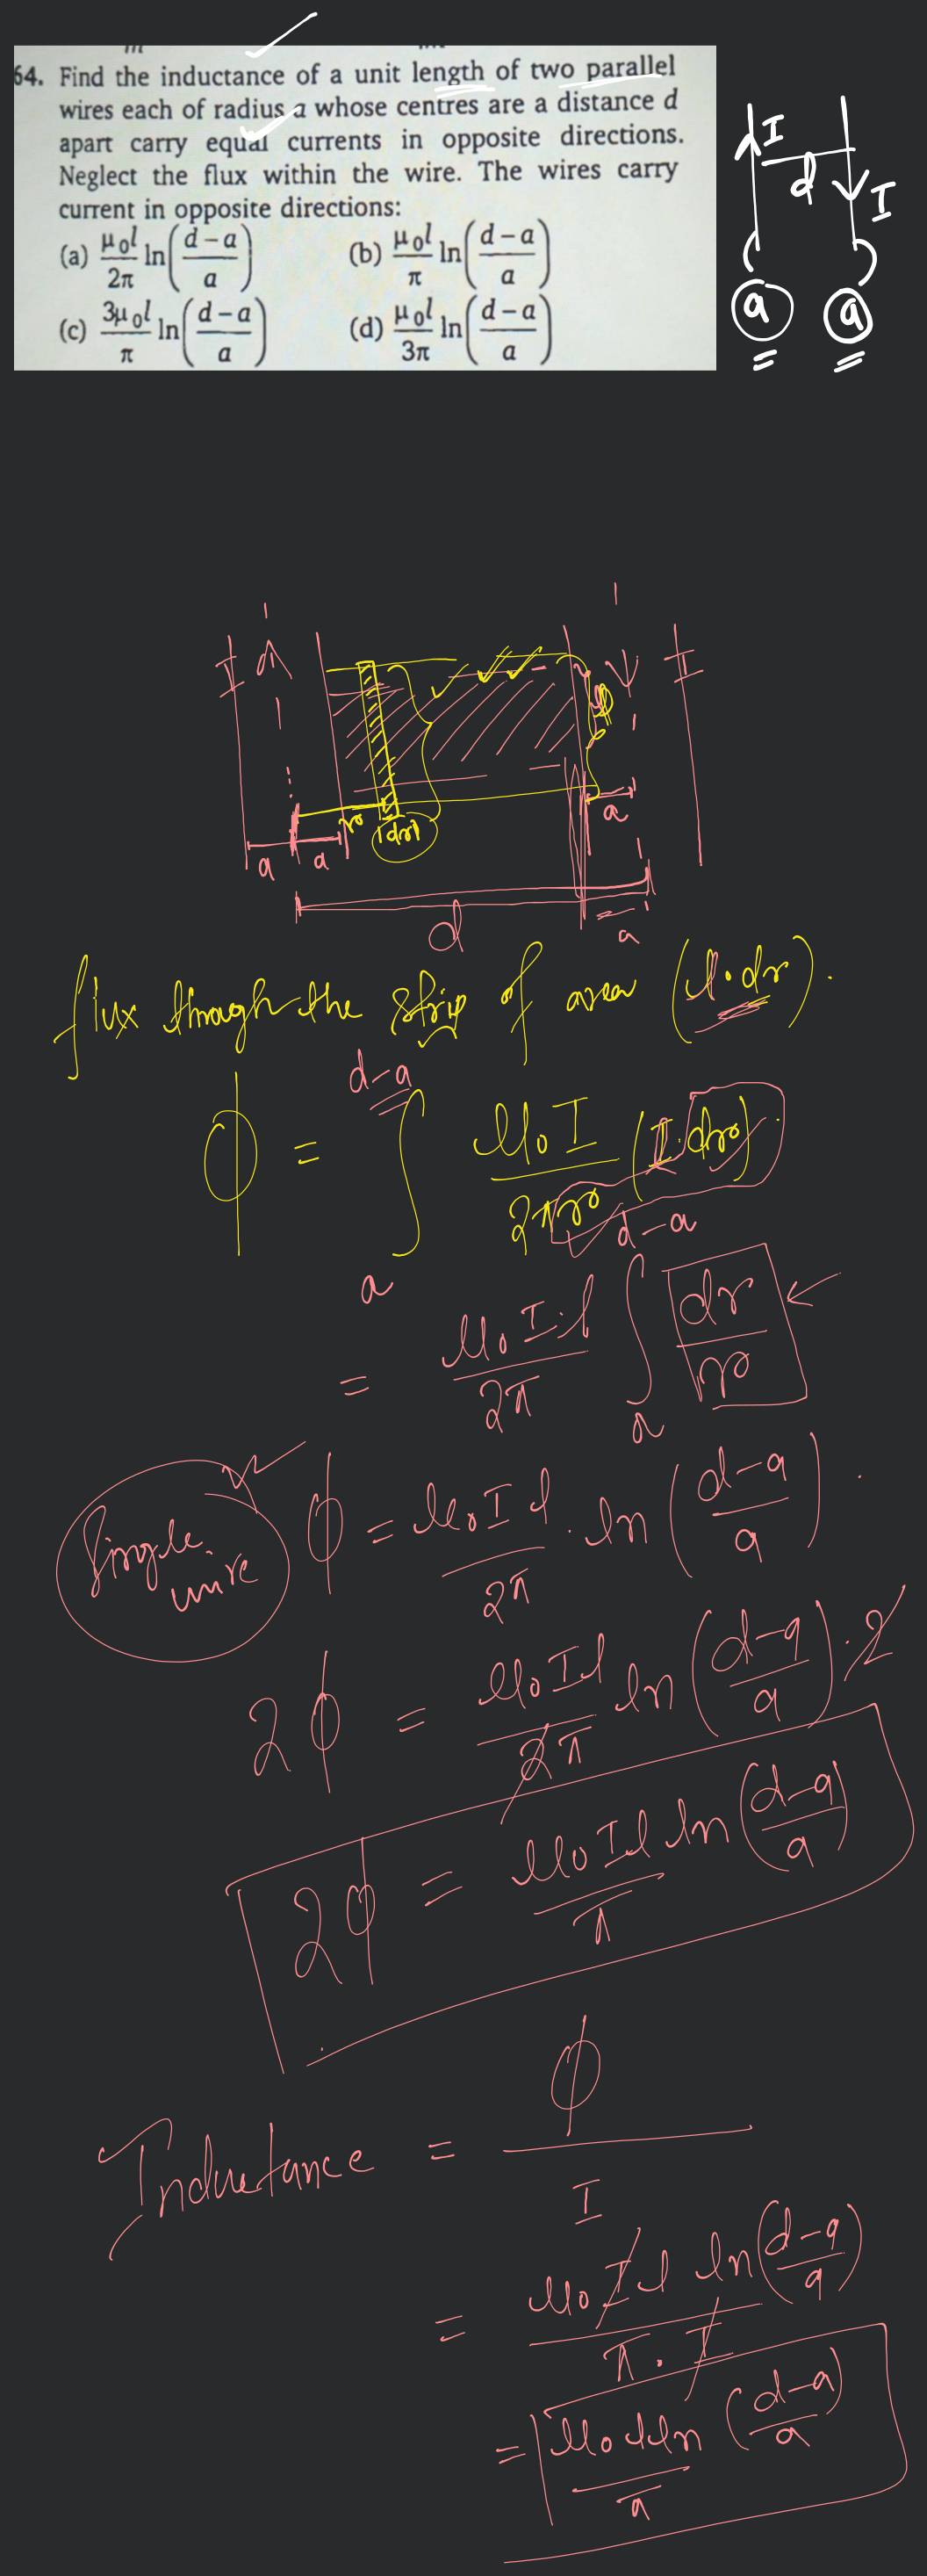 64. Find the inductance of a unit length of two parallel
wires each of radius a whose centres are a distance d
apart carry equal currents in opposite directions.
Neglect the flux within the wire. The wires carry
current in opposite directions:
(a) μ₀l/2π ln((d-a)/a) (b) μ₀l/π ln((d-a)/a)
(c) 3μ₀l/π ln((d-a)/a) (d) μ₀l/3π ln((d-a)/a)
I d I
a a
I I
l
r dr a
a a
d a
flux through the strip of area (l·dr).
ϕ = ∫ₐ^(d-a) μ₀I/2πr (l·dr)
= μ₀I·l/2π ∫ₐ^(d-a) dr/r
Single wire ϕ = μ₀Il/2π · ln((d-a)/a).
2ϕ = μ₀Il/2π ln((d-a)/a)·2
2ϕ = μ₀Il/π ln((d-a)/a)
Inductance = ϕ/I
= μ₀Il ln((d-a)/a)/π·I
= μ₀l ln/π ((d-a)/a)